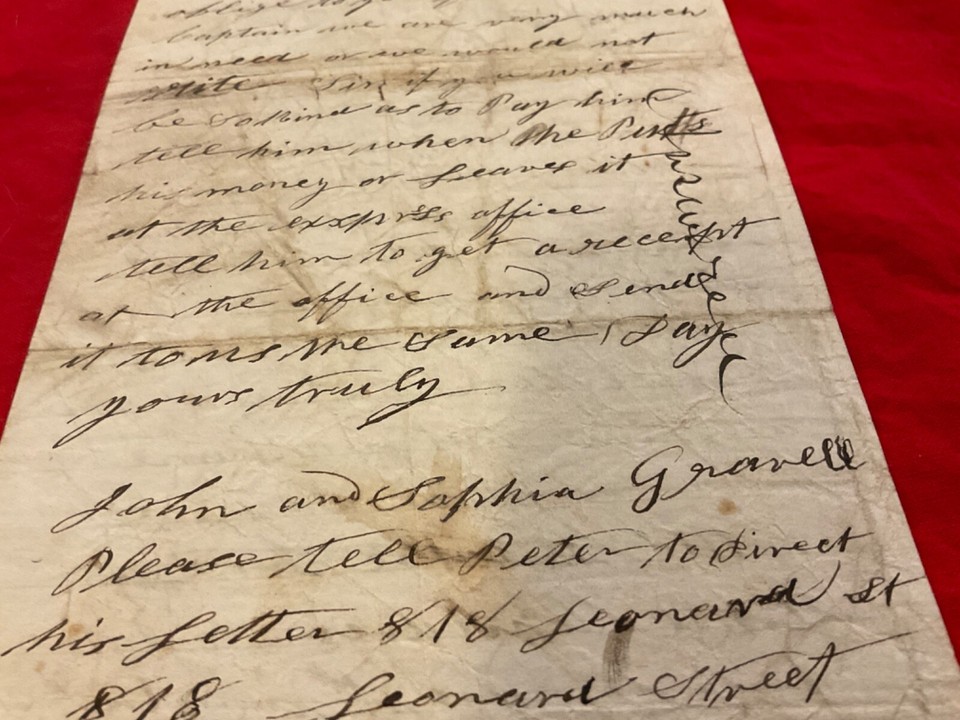 Captain we are very much
in need or we would not
write Sir if you will
be so kind as to Pay him
tell him when he Puts
his money or Leaves it
at the exspress office
tell him to get a receipt
at the office and Send
it to us the Same Day
yours truly
John and Sophia Gravell
Please tell Peter to Direct
his Letter 818 Leonard St
818 Leonard Street